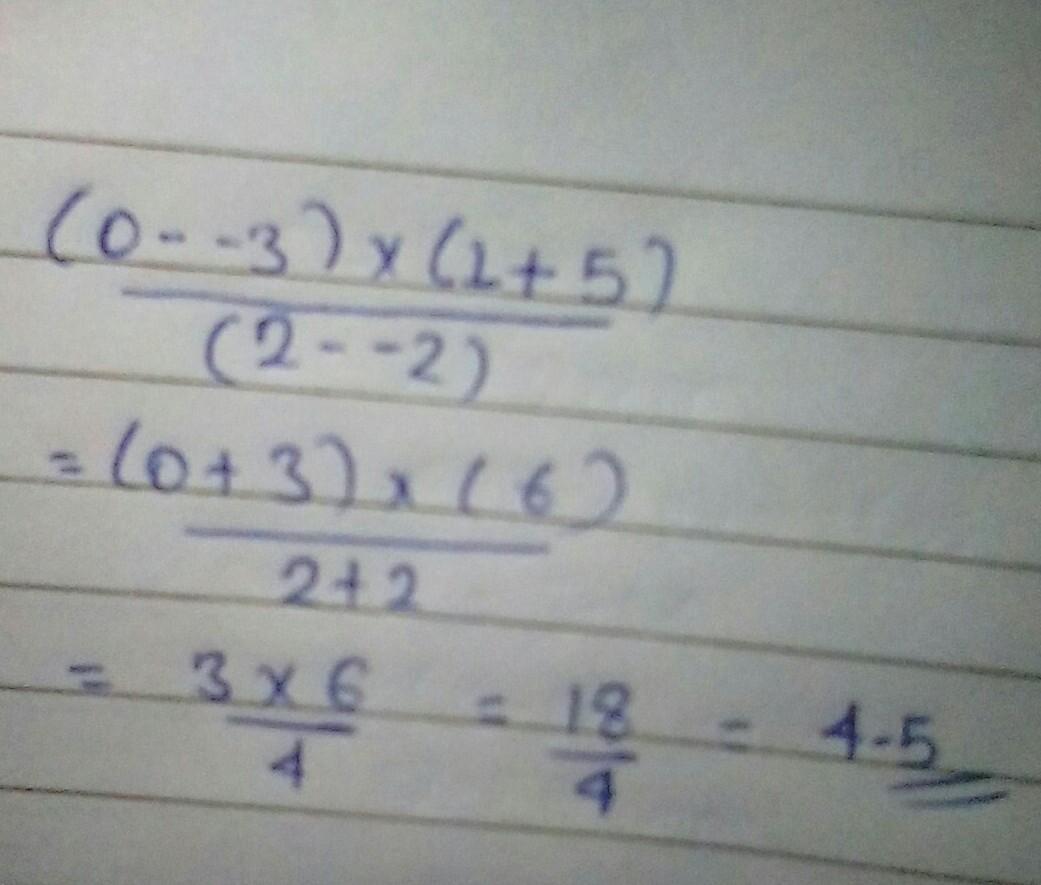 (0 - -3) × (1 + 5)
(2 - -2)
= (0 + 3) × (6)
2 + 2
= 3 × 6 = 18 = 4.5
4 4